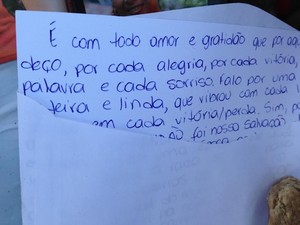 É com todo amor e gratidão que por aqu
deço, por cada alegria, por cada vitória,
palavra e cada sorriso. Falo por uma
teira e linda, que vibrou com cada
em cada vitória/perda. Sim, p
foi nosso salvação